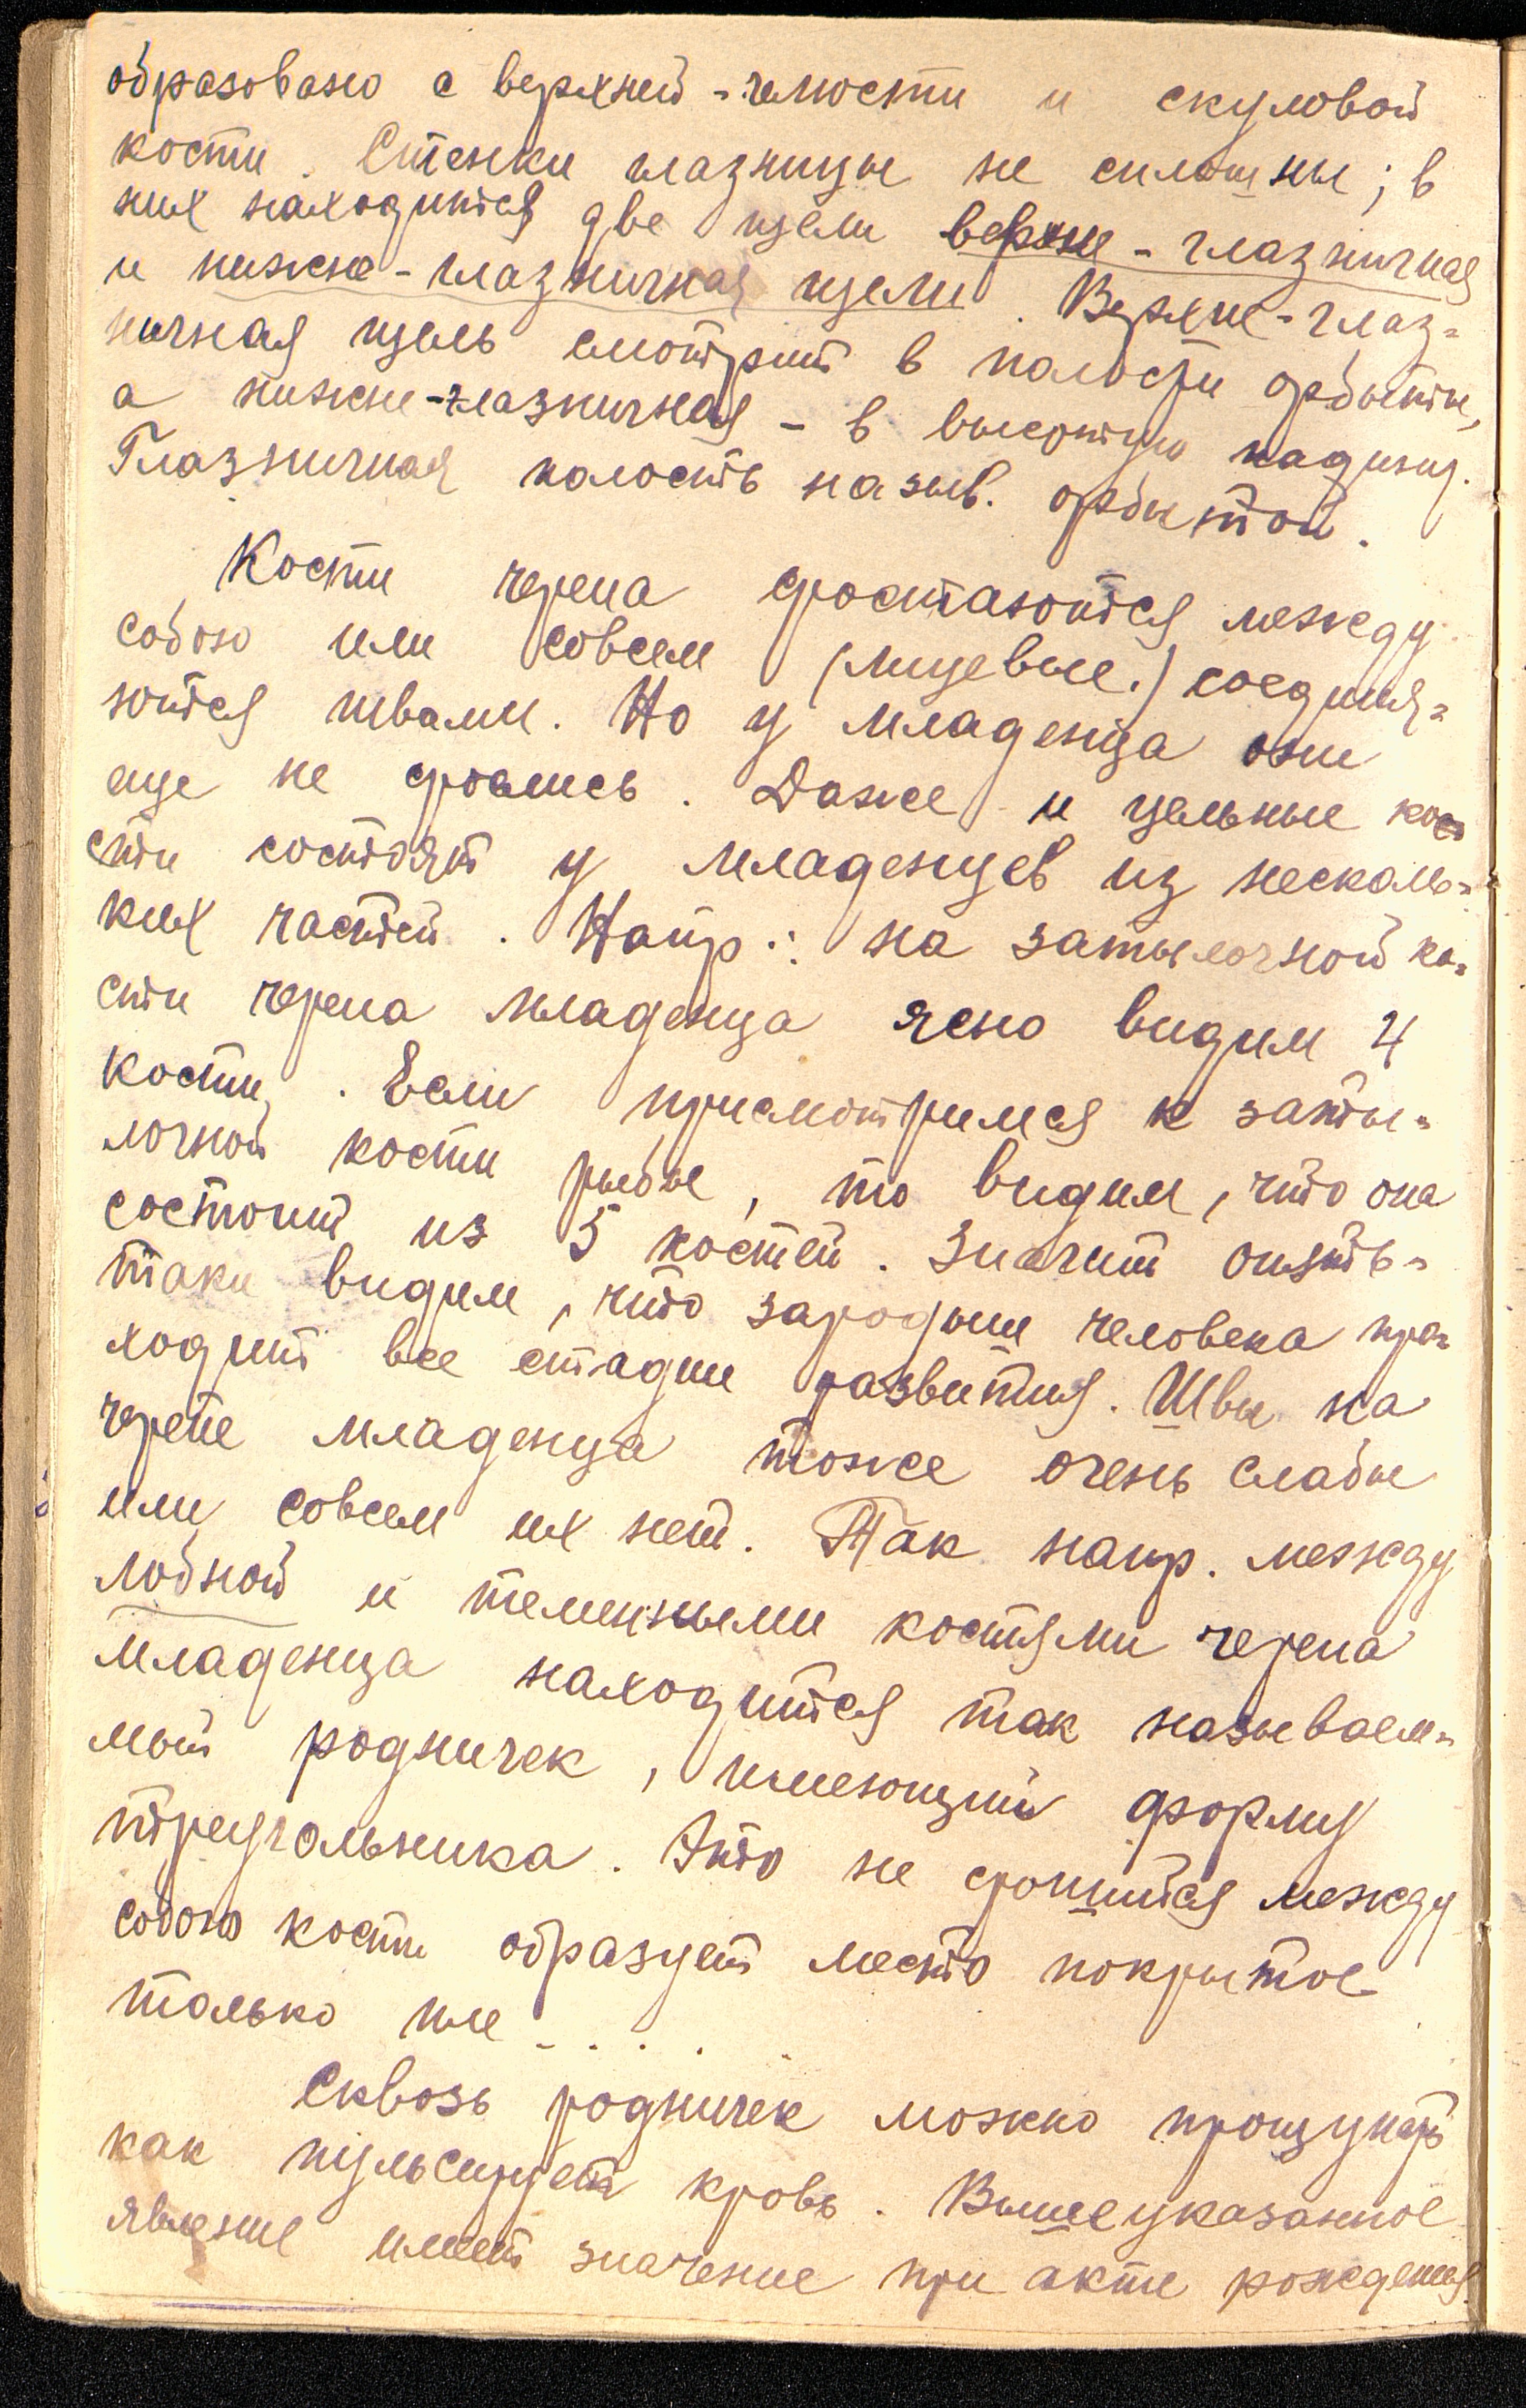 образовано с верхней-челюсти и скуловой
кости. Стенки глазницы не сплошны; в
них находится две щели верхне-глазничная
и нижне-глазничная щели. Верхне-глаз-
ничная щель смотрит в полости орбиты,
а нижне-глазничная - в височную
Глазничная полость назыв. орбитой.
Кости черепа сростаются между
собою или совсем (лицевые.) соединя-
ются швами. Но у младенца они
еще не срослись. Даже и цельные ко
сти состоят у младенцев из несколь-
ких частей. Напр.: на затылочной ко-
сти черепа младенца ясно видим 4
кости. Если присмотримся к заты-
лочной кости рыбы, то видим, что она
состоит из 5 костей. Значит опять-
таки видим, что зародыш человека про-
ходит все стадии развития. Швы на
черепе младенца тоже очень слабы
или совсем их нет. Так напр. между
лобной и теменными костями черепа
младенца находится так называем-
мый родничек, имеющий форму
треугольника. Это не срошиися между
собою кости образует место покрытое
только пле....
Сквозь родничек можно прощупать
как пульсирует кровь. Вышеуказанное
явление имеет значение при акте рождения